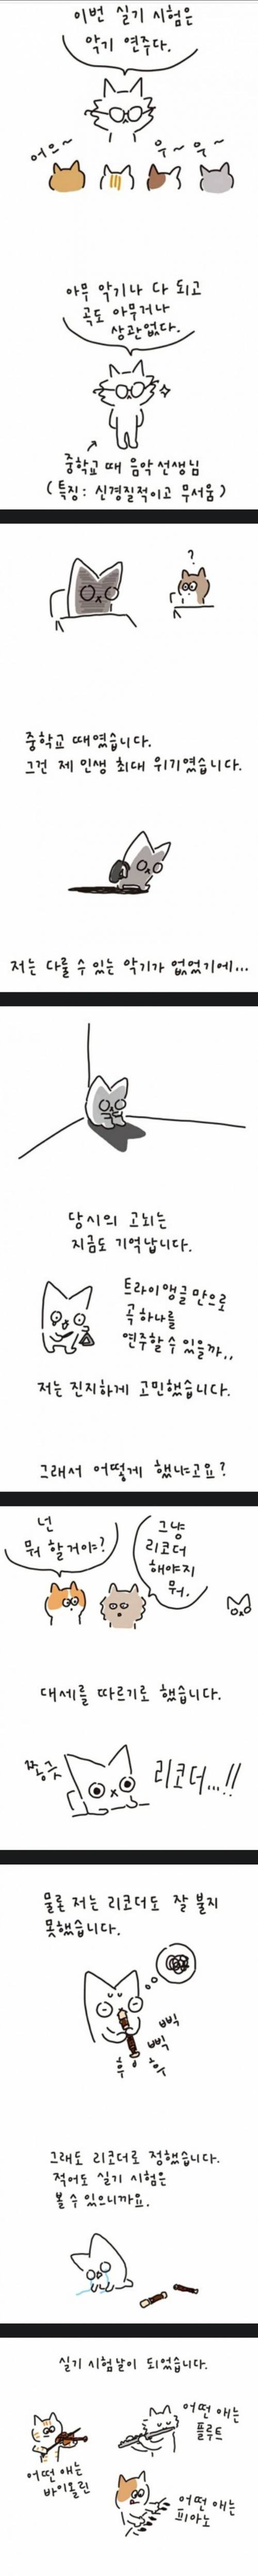 이번 실기 시험은
악기 연주다.
어으~
우~우~
아무 악기나 다 되고
곡도 아무거나
상관없다.
중학교 때 음악 선생님
(특징: 신경질적이고 무서움)
?
중학교 때였습니다.
그건 제 인생 최대 위기였습니다.
저는 다룰 수 있는 악기가 없었기에...
당시의 고뇌는
지금도 기억납니다.
트라이앵글 만으로
곡 하나를
연주할 수 있을까..
저는 진지하게 고민했습니다.
그래서 어떻게 했냐고요?
넌
뭐 할거야?
그냥
리코더
해야지
뭐.
대세를 따르기로 했습니다.
쫑긋
리코더...!!
물론 저는 리코더도 잘 불지
못했습니다.
삑
삑
후 후
그래도 리코더로 정했습니다.
적어도 실기 시험은
볼 수 있으니까요.
실기 시험날이 되었습니다.
어떤 애는
바이올린
어떤 애는
플루트
어떤 애는
피아노